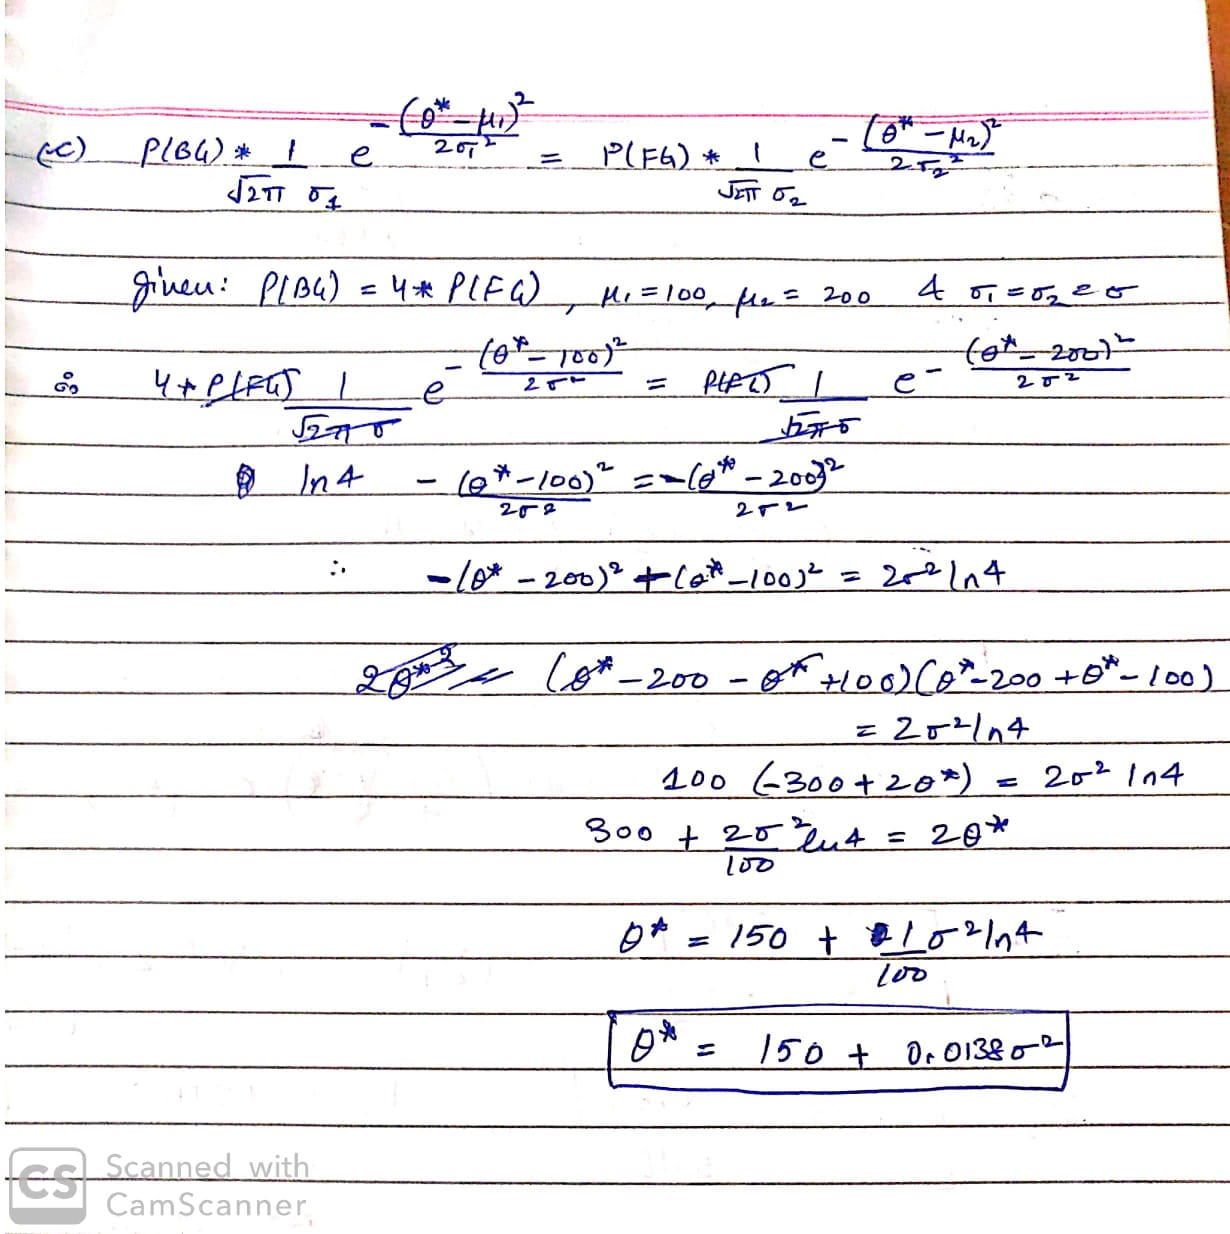 (c) P(BG) * 1/(√2π σ1) e^-(θ* - μ1)²/2σ1² = P(FG) * 1/(√2π σ2) e^-(θ* - μ2)²/2σ2²
given: P(BG) = 4 * P(FG), μ1 = 100, μ2 = 200 & σ1 = σ2 = σ
∴ 4 * P(FG) 1/(√2π σ) e^-(θ* - 100)²/2σ² = P(FG) 1/(√2π σ) e^-(θ* - 200)²/2σ²
ln 4 - (θ* - 100)²/2σ² = -(θ* - 200)²/2σ²
∴ -(θ* - 200)² + (θ* - 100)² = 2σ² ln 4
(θ* - 200 - θ* + 100)(θ* - 200 + θ* - 100)
= 2σ² ln 4
100 (-300 + 2θ*) = 2σ² ln 4
300 + 2σ²/100 ln 4 = 2θ*
θ* = 150 + 1/100 σ² ln 4
θ* = 150 + 0.0138 σ²
CS Scanned with
CamScanner